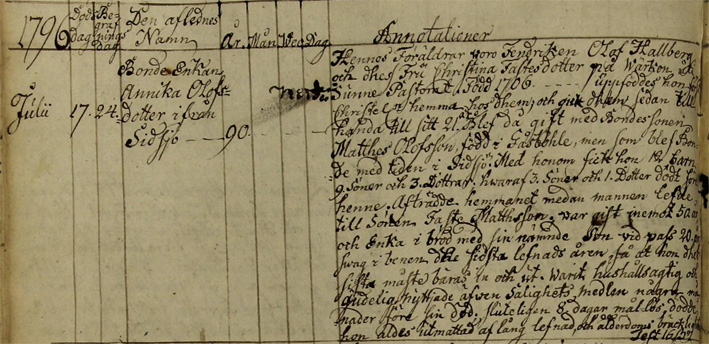 1796
Döds dag
Be graf nings dag
Den aflednes Namn
År. Mån. Wec. Dag.
Annotationer
Julii
17. 24.
Bonde Enkan
Annika Olofs-
dotter ifrån
Sidsjö 90.
Hennos Föräldrar voro Fendriken Olof Hallberg
och dhes Fru Christina Fastesdotter på Warkon uti
Sunne Pastorat. Född 1706 uppföddes hon
Christel. hemma hos dhem, och gick dhem sedan till
handa till sitt 21. Blef då gift med Bondesonen
Matthes Olofsson, född i Fastbohle, men som blef Bon
de med tiden i Sidsjö. Med honom fick hon 12 barn
9. Söner och 3. Döttrar. hwaraf 3. Söner och 1. Dotter dödt för
henne. Afträdde hemmanet medan mannen lefde
till Sonen Faste Matthsson, var gift inemot 50 år
och Enka i bröd med sin nämnde Son vid pass 20.
swag i benen dhe sidsta lefnads åren, så at hon dhet
sista måste bäras in och ut. Warit hushållsagtig och
gudelig, nyttjade äfven salighets medlen några må
nader före sin död. Sluteligen 8. dagar mållös, dödde
hon aldes utmattad af lång lefnad, och ålderdoms bräcklighet